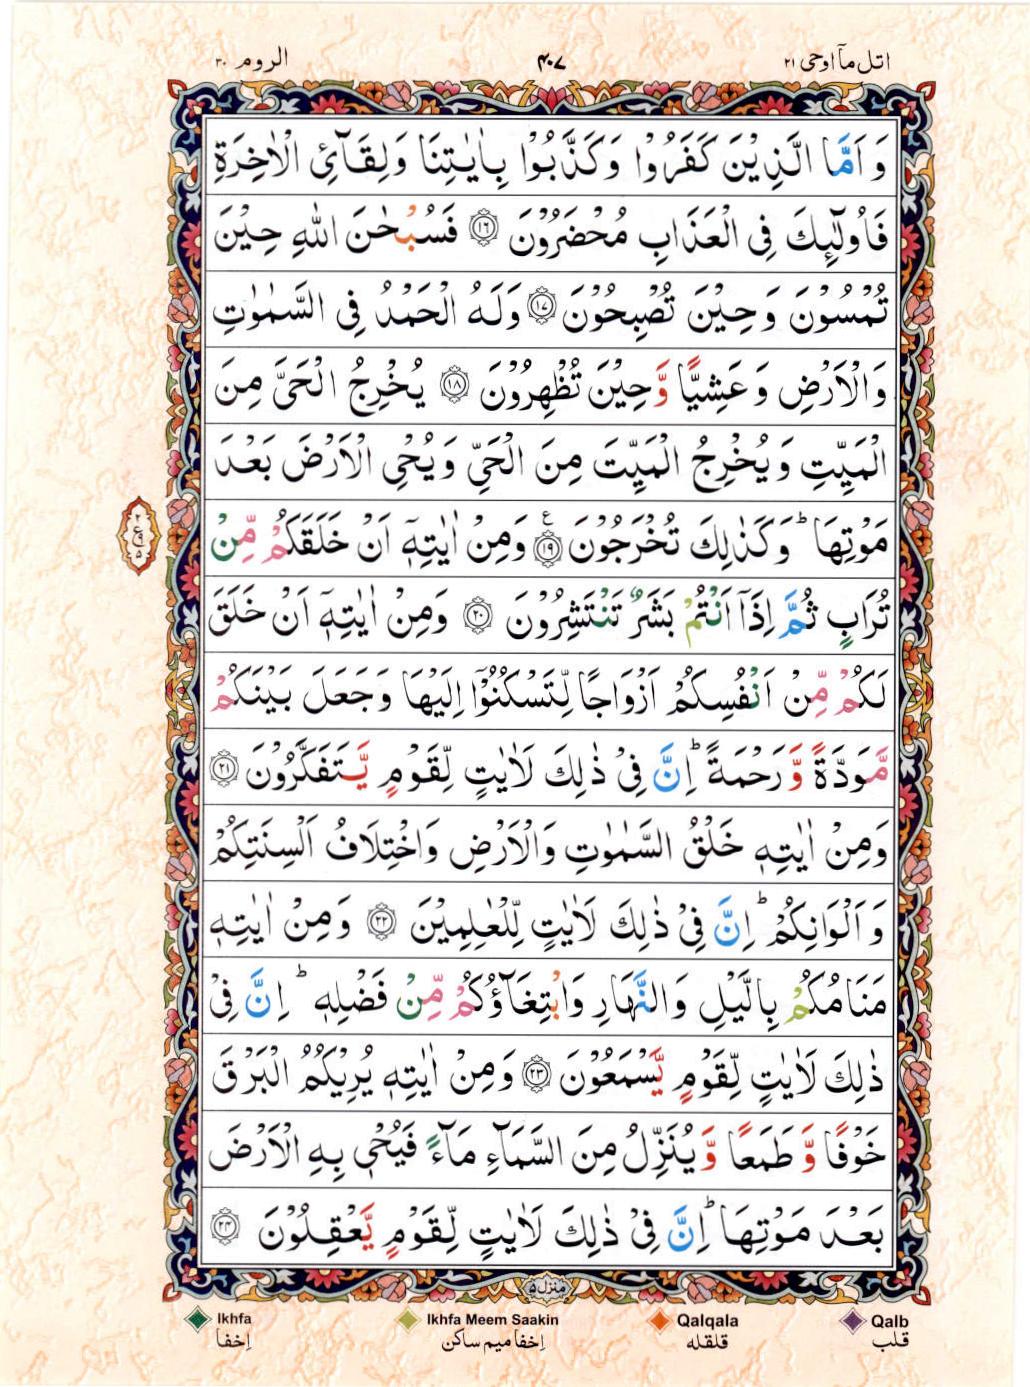 اتل مآ اوحی ۲۱
۴۰۷
الروم ۳۰
وَ اَمَّا الَّذِيْنَ كَفَرُوْا وَكَذَّبُوْا بِاٰيٰتِنَا وَلِقَآئِ الْاٰخِرَةِ
فَاُولٰٓئِكَ فِى الْعَذَابِ مُحْضَرُوْنَ ۝۱۶ فَسُبْحٰنَ اللّٰهِ حِيْنَ
تُمْسُوْنَ وَ حِيْنَ تُصْبِحُوْنَ ۝۱۷ وَلَهُ الْحَمْدُ فِى السَّمٰوٰتِ
وَالْاَرْضِ وَ عَشِيًّا وَّحِيْنَ تُظْهِرُوْنَ ۝۱۸ يُخْرِجُ الْحَىَّ مِنَ
الْمَيِّتِ وَيُخْرِجُ الْمَيِّتَ مِنَ الْحَىِّ وَيُحْىِ الْاَرْضَ بَعْدَ
مَوْتِهَا ؕ وَكَذٰلِكَ تُخْرَجُوْنَ ۝۱۹ ع وَمِنْ اٰيٰتِهٖۤ اَنْ خَلَقَكُمْ مِّنْ
تُرَابٍ ثُمَّ اِذَاۤ اَنْتُمْ بَشَرٌ تَنْتَشِرُوْنَ ۝۲۰ وَمِنْ اٰيٰتِهٖۤ اَنْ خَلَقَ
لَكُمْ مِّنْ اَنْفُسِكُمْ اَزْوَاجًا لِّتَسْكُنُوْۤا اِلَيْهَا وَجَعَلَ بَيْنَكُمْ
مَّوَدَّةً وَّرَحْمَةً ؕ اِنَّ فِىْ ذٰلِكَ لَاٰيٰتٍ لِّقَوْمٍ يَّتَفَكَّرُوْنَ ۝۲۱
وَمِنْ اٰيٰتِهٖ خَلْقُ السَّمٰوٰتِ وَالْاَرْضِ وَاخْتِلَافُ اَلْسِنَتِكُمْ
وَ اَلْوَانِكُمْ ؕ اِنَّ فِىْ ذٰلِكَ لَاٰيٰتٍ لِّلْعٰلِمِيْنَ ۝۲۲ وَ مِنْ اٰيٰتِهٖ
مَنَامُكُمْ بِالَّيْلِ وَالنَّهَارِ وَابْتِغَآؤُكُمْ مِّنْ فَضْلِهٖ ؕ اِنَّ فِىْ
ذٰلِكَ لَاٰيٰتٍ لِّقَوْمٍ يَّسْمَعُوْنَ ۝۲۳ وَمِنْ اٰيٰتِهٖ يُرِيْكُمُ الْبَرْقَ
خَوْفًا وَّطَمَعًا وَّيُنَزِّلُ مِنَ السَّمَآءِ مَآءً فَيُحْىٖ بِهِ الْاَرْضَ
بَعْدَ مَوْتِهَا ؕ اِنَّ فِىْ ذٰلِكَ لَاٰيٰتٍ لِّقَوْمٍ يَّعْقِلُوْنَ ۝۲۴
منزل ۵
Ikhfa
Ikhfa Meem Saakin
Qalqala
Qalb
اِخفا
اِخفا میم ساکن
قلقله
قلب